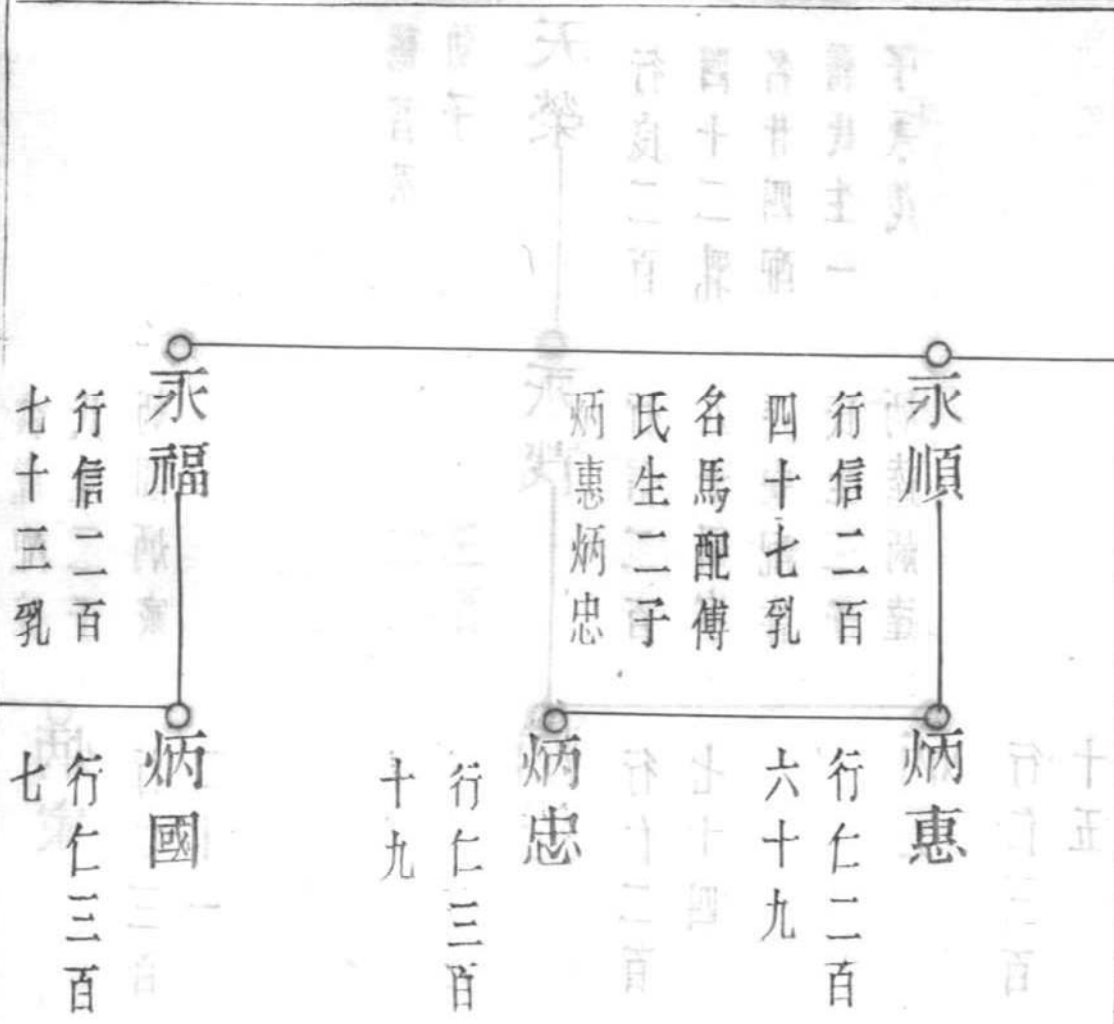 永順
行信二百
四十七乳
名馬配傅
氏生二子
炳惠炳忠
永福
行信二百
七十三乳
炳惠
行仁二百
六十九
炳忠
行仁三百
十九
炳國
行仁三百
七